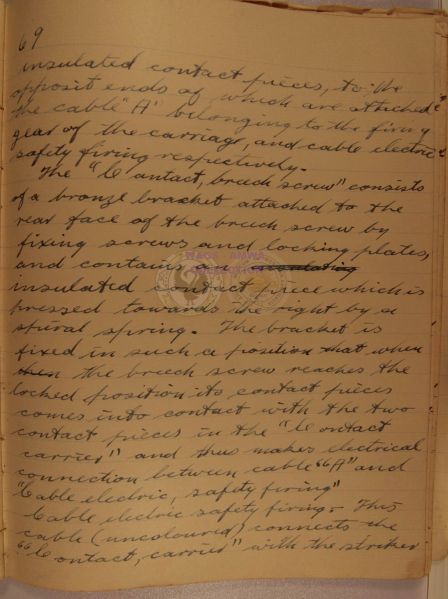 69
insulated contact pieces, to the
opposit ends of which are attached
the cable "A" belonging to the firing
gear of the carriage, and cable electric
safety firing respectively.
The "Contact, breech screw" consists
of a bronze bracket attached to the
rear face of the breech screw by
fixing screws and locking plates,
and contains an insulating
insulated contact piece which is
pressed towards the right by a
spiral spring. The bracket is
fixed in such a position that when
then the breech screw reaches the
locked position its contact pieces
comes into contact with the two
contact pieces in the "Contact
carrier" and thus makes electrical
connection between cable "A" and
"Cable electric, safety firing"
Cable electric safety firing. This
cable (uncoloured) connects the
"Contact, carrier" with the striker